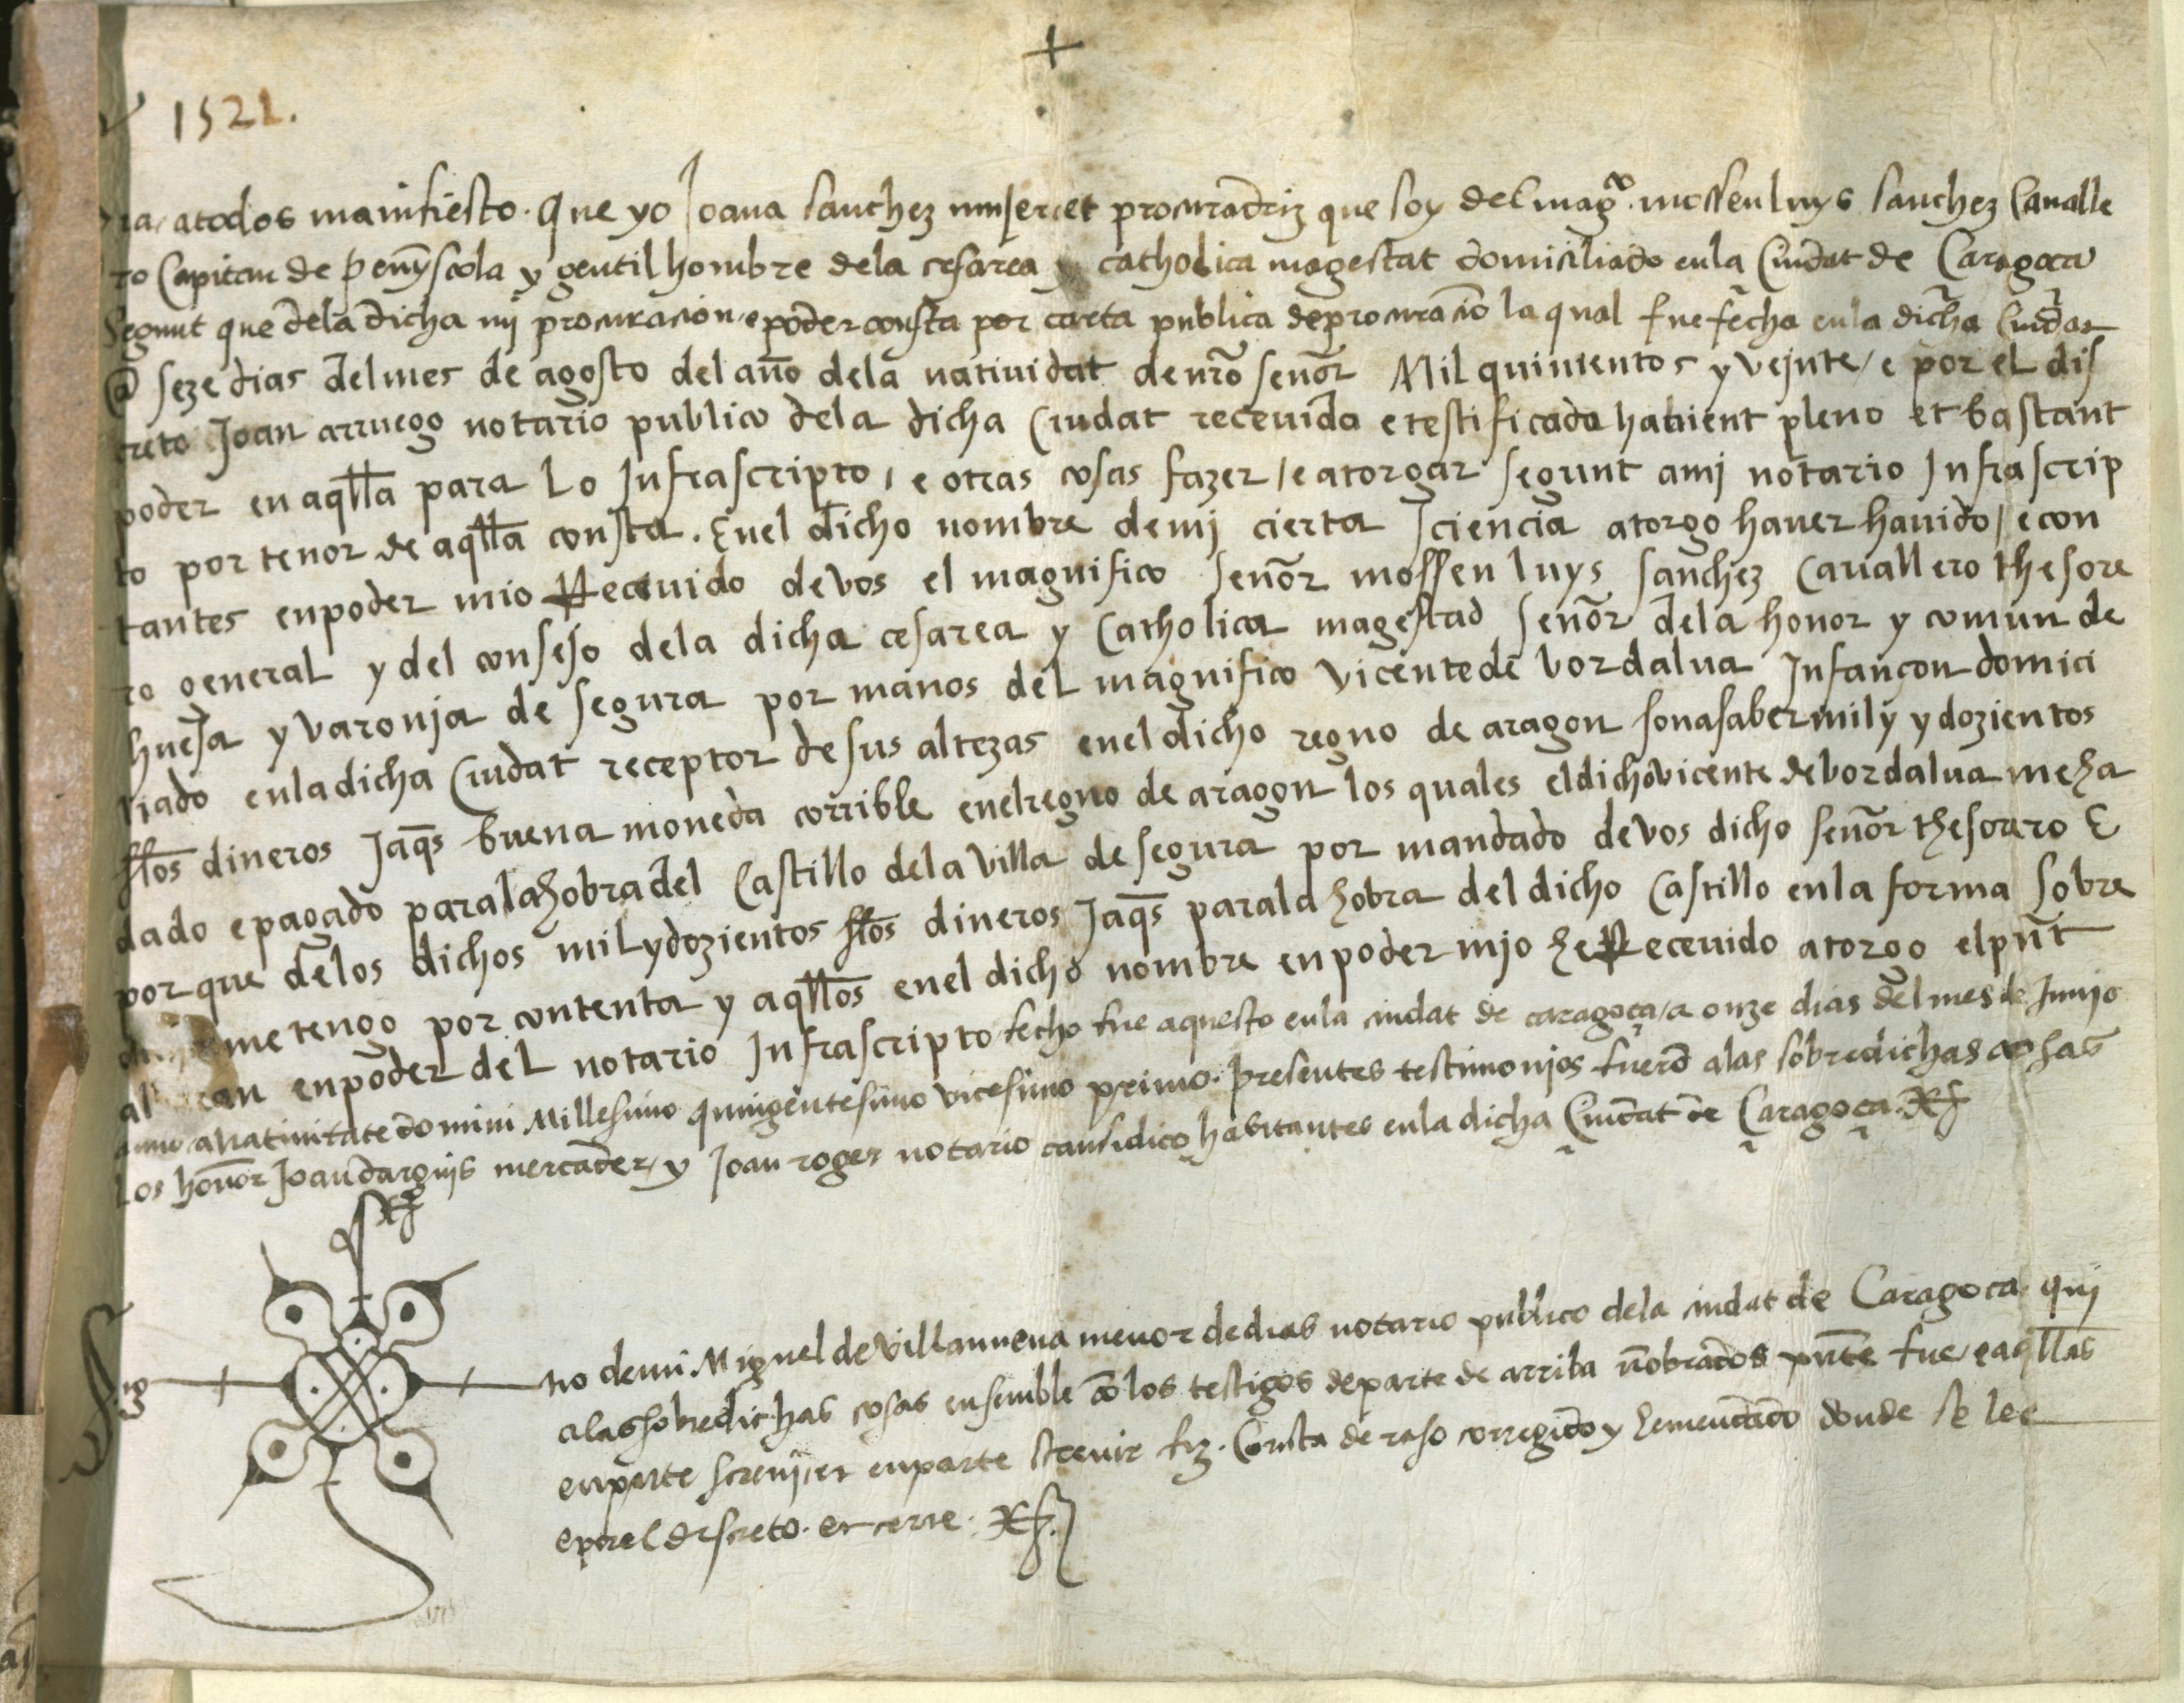 +
1521.
ra, atodos manifiesto. Que yo Joana sanchez museret procuradriz que soy del magº. mossen luys sanchez Caualle
ro Capitan de penyscola y gentilhombre dela cesarea y catholica magestat domiciliado enla Ciudat de Caragoca
Segunt que dela dicha mj procuracion, e poder consta por carta publica de procuraciō la qual fue fecha enla dicha Ciudat
@ seze dias delmes de agosto del año dela natiuidat de nr̄o señor Mil quinientos y vejnte / e por el dis
creto Joan arruego notario publico dela dicha Ciudat receuida e testificada hauient pleno et bastant
poder en aq̄lla para Lo Jnfrascripto, e otras cosas fazer / e atorgar segunt amj notario Jnfrascrip
to por tenor de aq̄lla consta. Enel dicho nombre demj cierta sciencia atorgo hauer hauido / e con
tantes enpoder mio Receuido devos el magnifico señor mossen luys sanchez Cauallero thesore
ro general y del consejo dela dicha cesarea y Catholica magestad señor dela honor y comun de
huesa y varonja de segura por manos del magnifico vicente de bordalua Jnfançon domici
liado enla dicha Ciudat receptor de sus altezas enel dicho regno de aragon sonasaber mily y dozientos
ss̄os dineros Jaq̄s buena moneda corrible enelregno de aragon los quales eldicho vicente de bordalua meha
dado e pagado parala hobra del Castillo dela villa de segura por mandado devos dicho señor thesorero E
por que delos dichos mil y dozientos ss̄os dineros Jaq̄s parala hobra del dicho Castillo enla forma sobre
metengo por contenta y aq̄llos enel dicho nombre enpoder mjo he Receuido atorgo elpn̄t
al an enpoder del notario Jnfrascripto fecho fue aquesto enla ciudat de caragoça / a onze dias delmes de Junjo
anno anatiuitate domini Millesimo quingentesimo vicesimo primo. presentes testimonjos fuerō alas sobredichas cosas
Los honor Joan dargujs mercader, y Joan roger notario causidico habitantes enla dicha Ciudat de Caragoça.
Sig no demi Miguel de villanueua menor de dias notario publico dela ciudat de Caragoca. quj
alas sobredichas cosas ensemble cō los testigos departe de arriba nōbrados pn̄te fue, e aq̄llas
enparte screuj, et enparte screuir fiz. Consta de raso corregido y hemendado donde se lee
e porel discreto. et cerre.